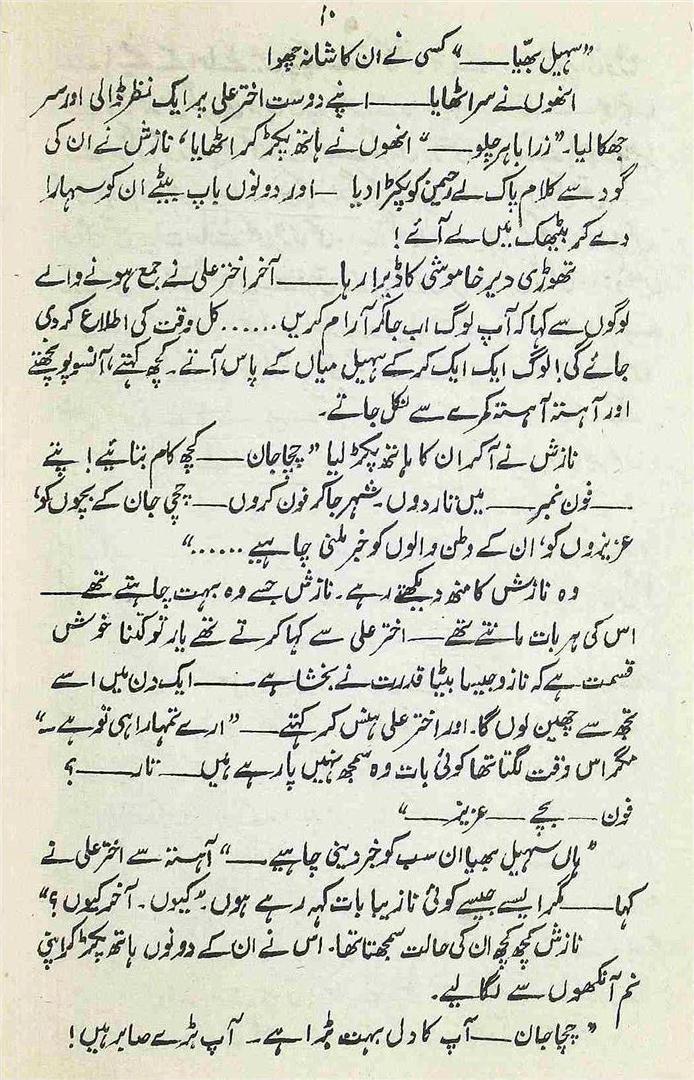 ۱۰
”سہیل بھیّا ـــــ“ کسی نے ان کا شانہ چھوا
انھوں نے سر اٹھایا ـــــ اپنے دوست اختر علی پر ایک نظر ڈالی اور سر
جھکا لیا۔ ”ذرا باہر چلو ـــــ“ انھوں نے ہاتھ پکڑ کر اٹھایا، نازش نے ان کی
گود سے کلام پاک لے رحیمن کو پکڑا دیا ـــ اور دونوں باپ بیٹے ان کو سہارا
دے کر بیٹھک میں لے آئے!
تھوڑی دیر خاموشی کا ڈیرا رہا ـــــ آخر اختر علی نے جمع ہونے والے
لوگوں سے کہا کہ آپ لوگ اب جا کر آرام کریں ...... کل وقت کی اطلاع کر دی
جائے گی! لوگ ایک ایک کر کے سہیل میاں کے پاس آتے۔ کچھ کہتے، آنسو پونچھتے
اور آہستہ آہستہ کمرے سے نکل جاتے۔
نازش نے آ کر ان کا ہاتھ پکڑ لیا ”چچا جان ـــــ کچھ کام بتائیے! پتے
ـــــ فون نمبر ـــــ میں تار دوں۔ شہر جا کر فون کروں ـــــ چچی جان کے بچوں کو،
عزیزوں کو، ان کے وطن والوں کو خبر ملنی چاہیے ......“
وہ نازش کا منھ دیکھتے رہے۔ نازش جسے وہ بہت چاہتے تھے ـــــ
اس کی ہر بات مانتے تھے ـــــ اختر علی سے کہا کرتے تھے یار تو کتنا خوش
قسمت ہے کہ نازو جیسا بیٹا قدرت نے بخشا ہے ـــــ ایک دن میں اسے
تجھ سے چھین لوں گا۔ اور اختر علی ہنس کر کہتے ـــــ ”ارے تمہارا ہی تو ہے ـــ“
مگر اس وقت لگتا تھا کوئی بات وہ سمجھ نہیں پا رہے ہیں ـــــ تار ـــــ ؟
فون ـــــ بچے ـــــ عزیز ـــــ“
”ہاں سہیل بھیا ان سب کو خبر دینی چاہیے ـــــ“ آہستہ سے اختر علی نے
کہا ـــــ مگر ایسے جیسے کوئی نازیبا بات کہہ رہے ہوں۔ ”کیوں۔ آخر کیوں؟“
نازش کچھ کچھ ان کی حالت سمجھتا تھا۔ اس نے ان کے دونوں ہاتھ پکڑ کر اپنی
نم آنکھوں سے لگا لیے۔
”چچا جان ـــــ آپ کا دل بہت بڑا ہے ـــ آپ بڑے صابر ہیں!